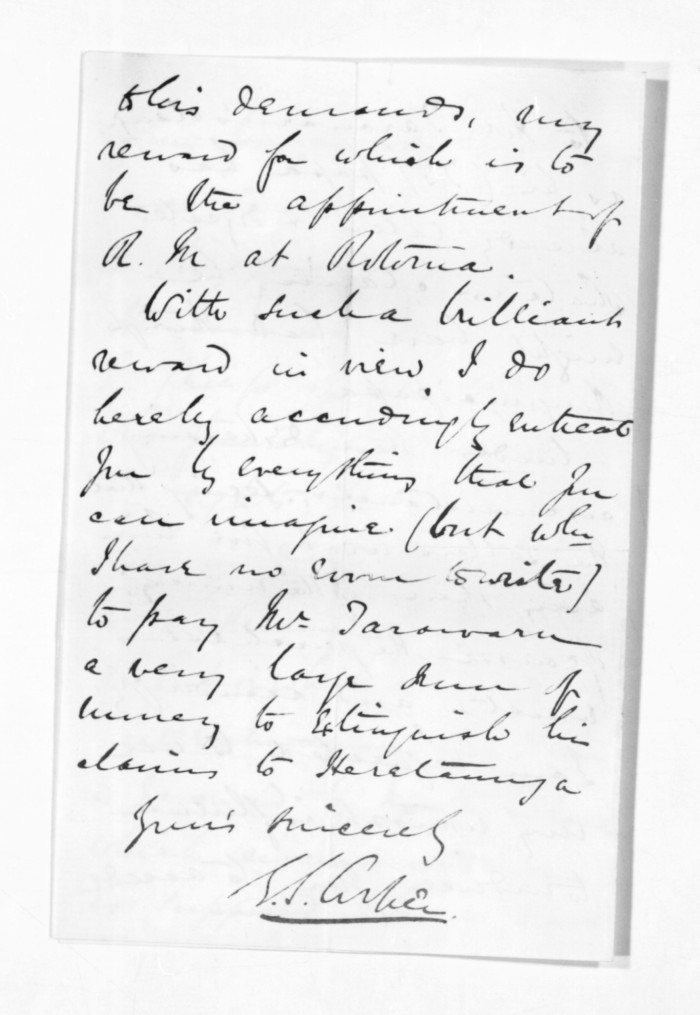 to his demands, my
reward for which is to
be the appointment of
R. M at Rotorua.
With such a brilliant
reward in view I do
hereby accordingly entreat
you by everything that you
can imagine (but wh
I have no room to write)
to pay Mr Tarawaru
a very large sum of
money to extinguish his
claims to Heretaunga
Yours sincerely
G. S. Cooper.